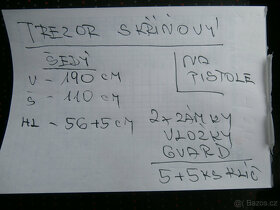 TREZOR SKŘÍŇOVÝ
ŠEDÝ
V - 190 CM
Š - 110 CM
HL - 56+5 CM
NA
PISTOLE
2x ZÁMKY
VLOŽKY
GUARD
5+5 KS KLÍČ
Bazoš.cz